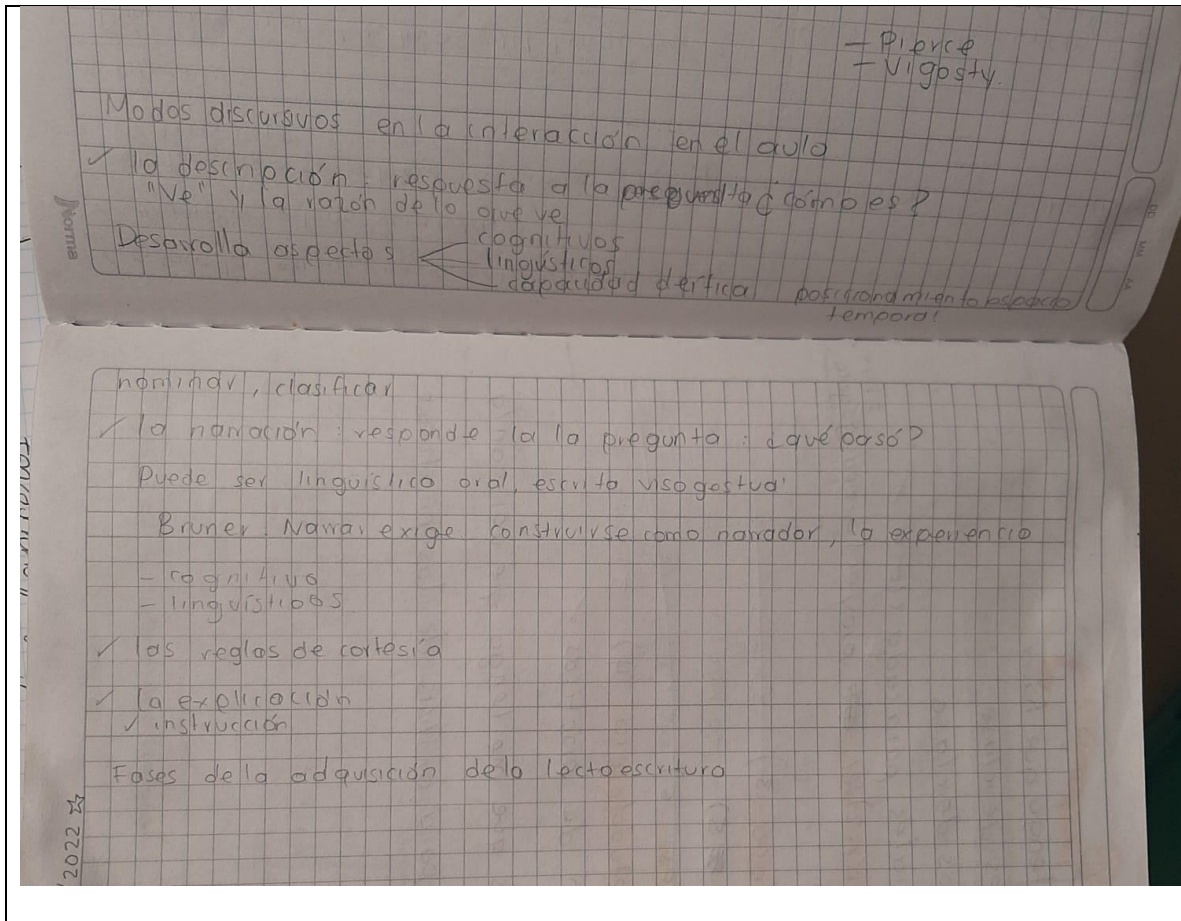 - Pierce
- Vigosty.
Modos discursivos en la interacción en el aula
✓ la descripción: respuesta a la pregunta ¿cómo es?
"Ve" y la razón de lo que ve
Desarrolla aspectos cognitivos
lingüísticos
capacidad posicionamiento
temporal
Norma
nominar, clasificar
✓ la narración: responde a la pregunta: ¿qué pasó?
Puede ser lingüístico oral, escrito visogestual
Bruner. Narrar exige construirse como narrador, la experiencia
- cognitivo
- lingüísticos
✓ las reglas de cortesía
✓ la explicación
✓ instrucción
Fases de la adquisición de la lectoescritura
2022 ☆